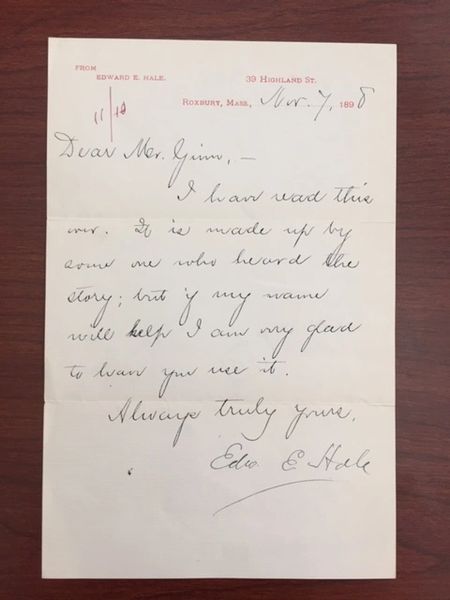 FROM
EDWARD E. HALE.
39 HIGHLAND ST.
ROXBURY, MASS., Nov. 7, 1898
11/10
Dear Mr. Ginn, —
I have read this
over. It is made up by
some one who heard the
story; but if my name
will help I am very glad
to have you use it.
Always truly yours,
Edw. E Hale